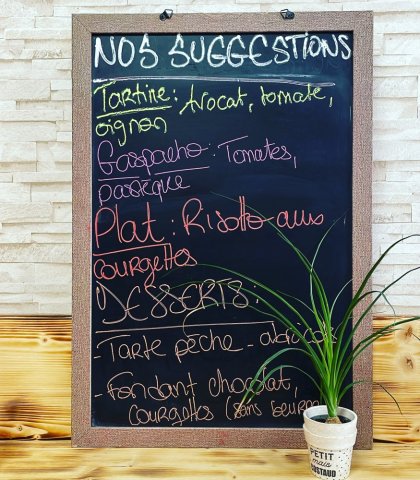 NOS SUGGESTIONS
Tartine: Avocat, tomate,
oignon
Gaspacho: Tomates,
pastèque
Plat: Risotto aux
courgettes
DESSERTS:
- Tarte pêche - abricots
- Fondant chocolat,
courgettes (sans beurre
PETIT
mais
COSTAUD